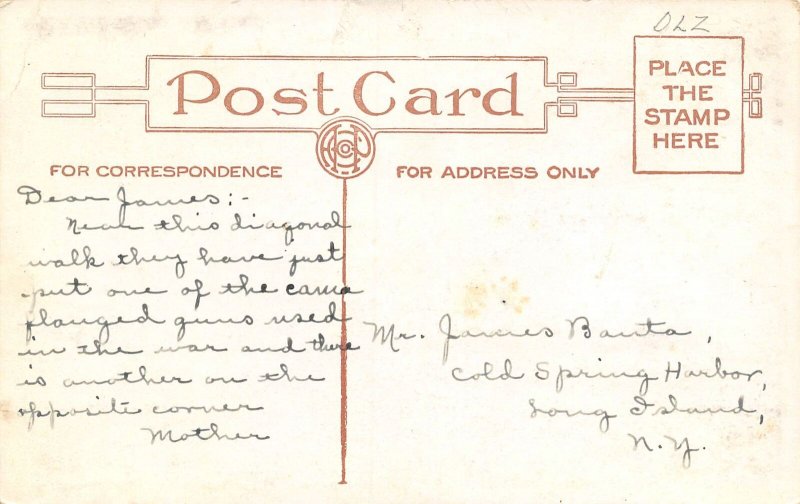 OLZ
Post Card
PLACE
THE
STAMP
HERE
FOR CORRESPONDENCE
FOR ADDRESS ONLY
Dear James:-
Near this diagonal
walk they have just
put one of the camo
flauged guns used
in the war and there
is another on the
opposite corner
Mother
Mr. James Banta,
Cold Spring Harbor,
Long Island,
N.Y.